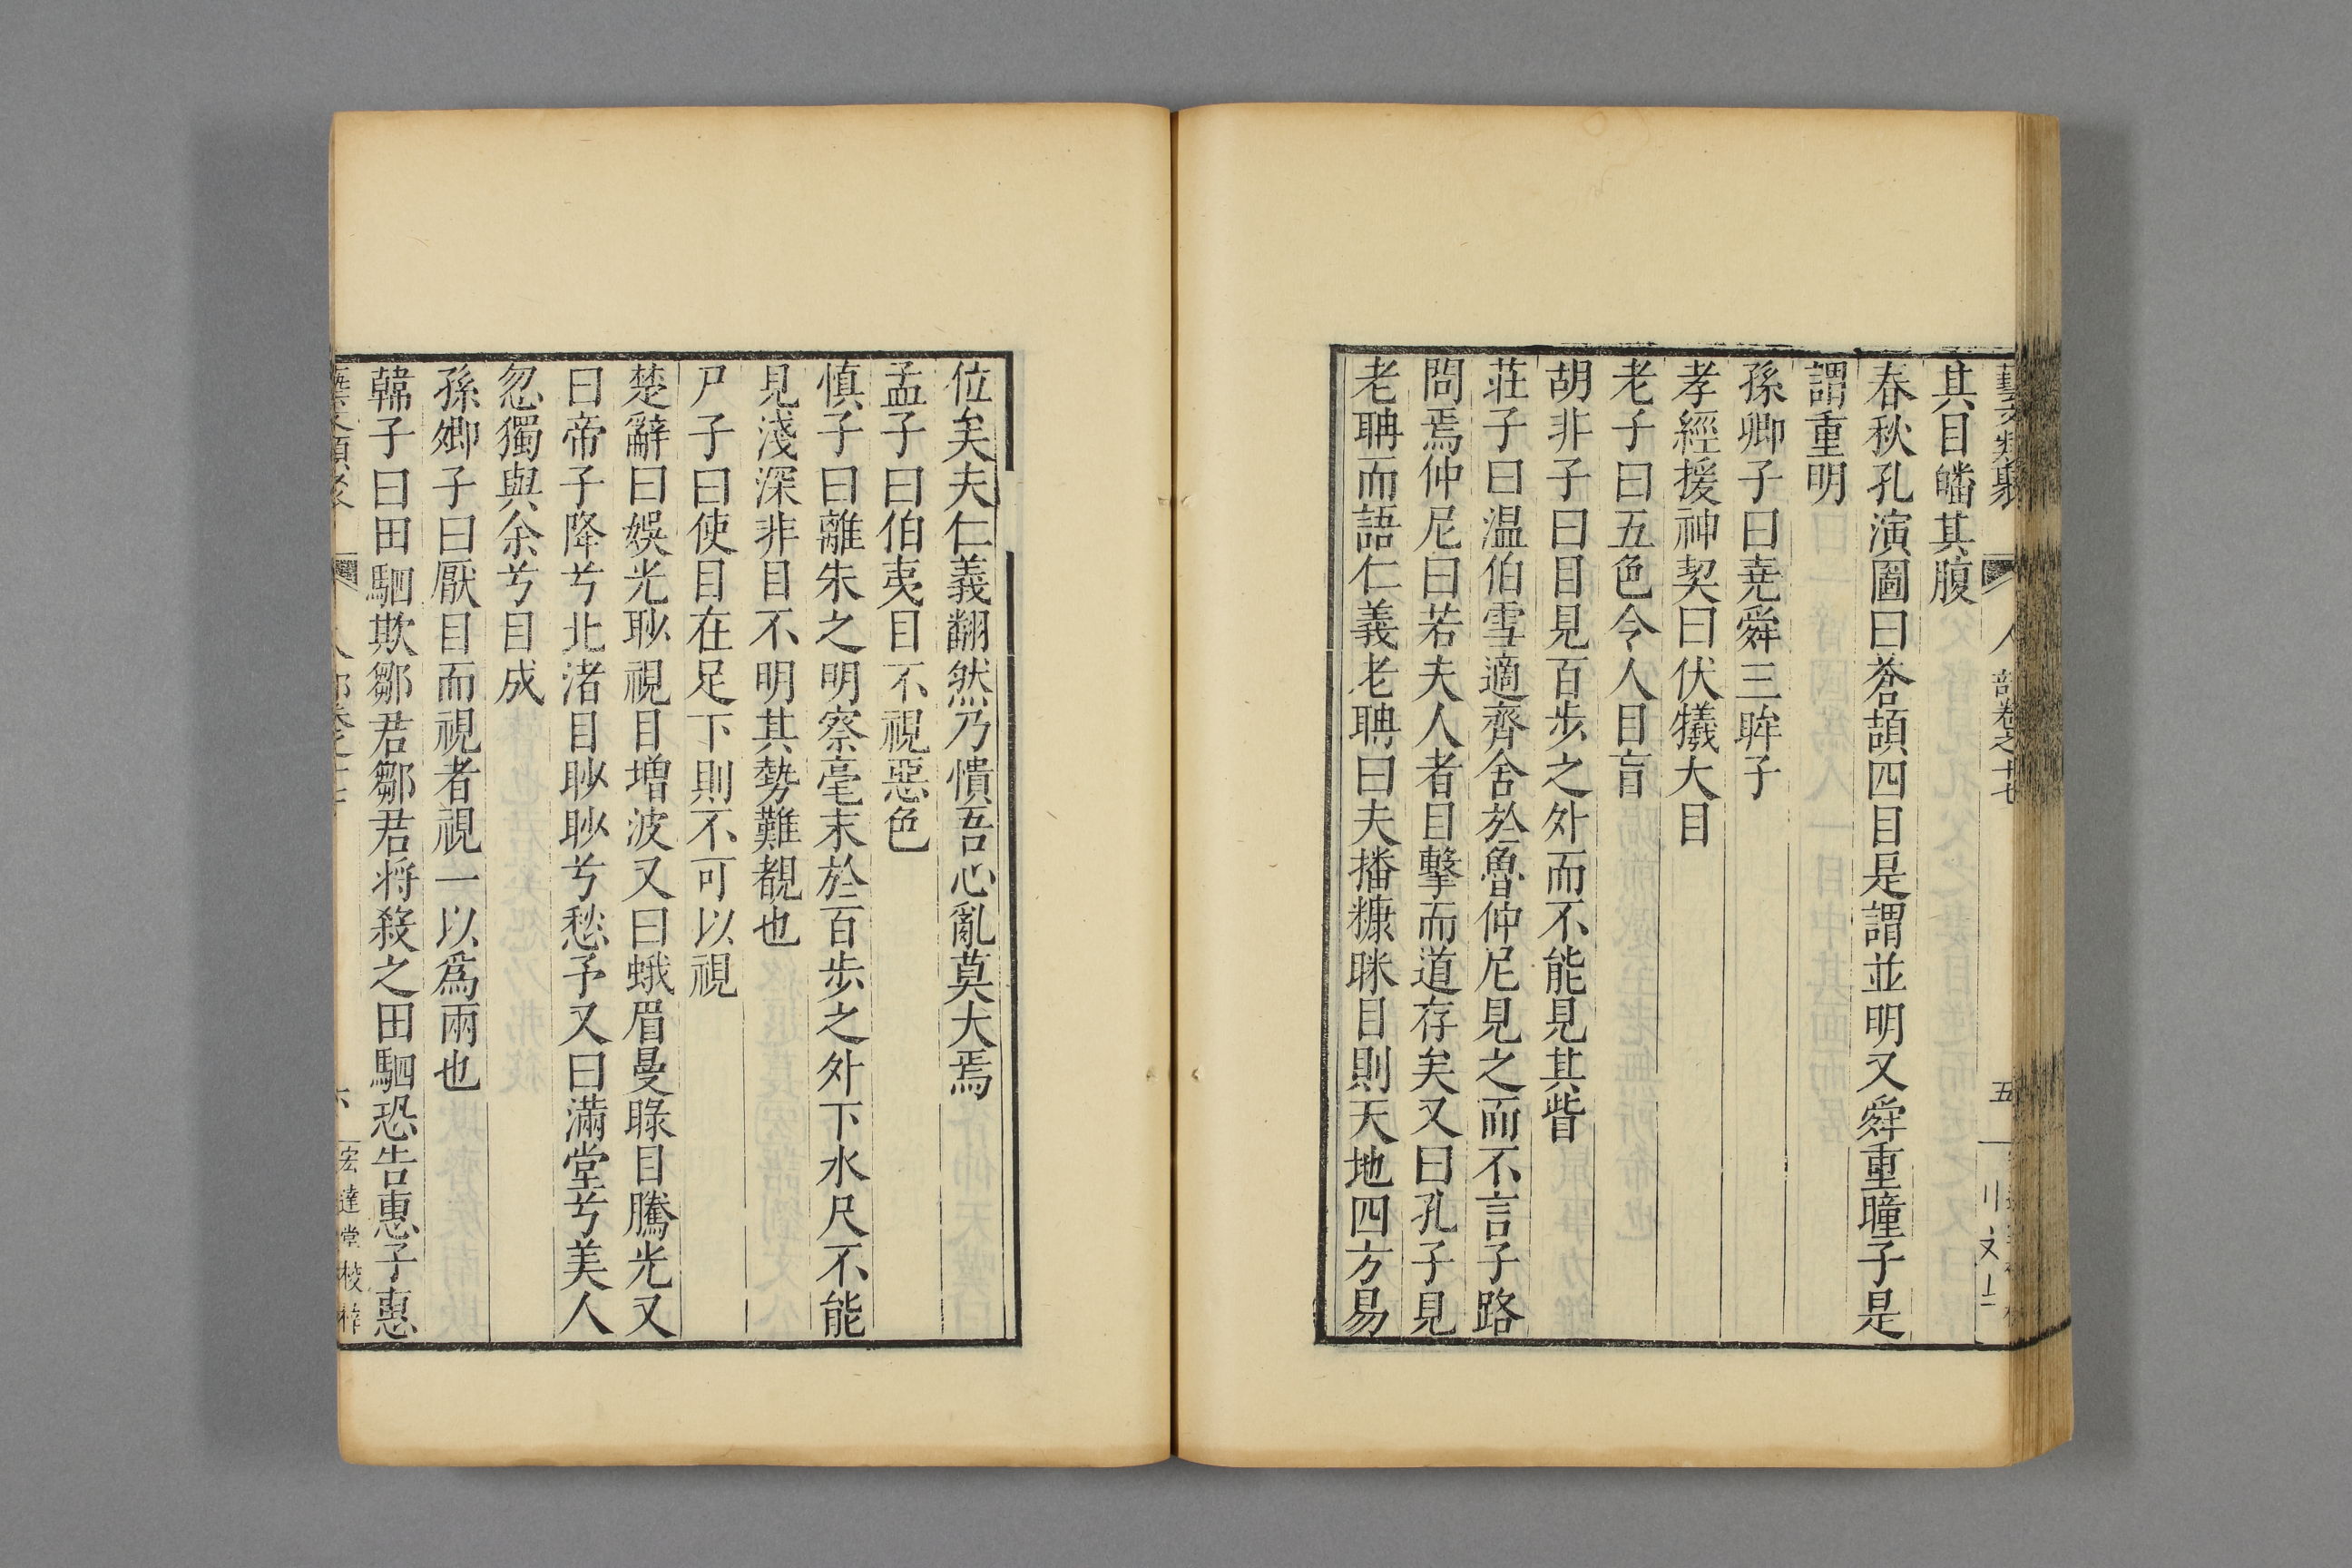 藝文類聚 人部卷之十七 五
其目皤其腹
春秋孔演圖曰蒼頡四目是謂並明又舜重瞳子是
謂重明
孫卿子曰堯舜三眸子
孝經援神契曰伏犠大目
老子曰五色令人目盲
胡非子曰目見百步之外而不能見其眥
莊子曰温伯雪適齊舍於魯仲尼見之而不言子路
問焉仲尼曰若夫人者目擊而道存矣又曰孔子見
老聃而語仁義老聃曰夫播糠眯目則天地四方易
位矣夫仁義翻然乃憒吾心亂莫大焉
孟子曰伯夷目不視惡色
慎子曰離朱之明察毫末於百步之外下水尺不能
見淺深非目不明其勢難覩也
尸子曰使目在足下則不可以視
楚辭曰娛光眇視目增波又曰蛾眉曼睩目騰光又
曰帝子降兮北渚目眇眇兮愁予又曰滿堂兮美人
忽獨與余兮目成
孫卿子曰厭目而視者視一以爲兩也
韓子曰田駟欺鄒君鄒君将殺之田駟恐告惠子惠
藝文類聚 人部卷之十七 六 宏達堂校梓